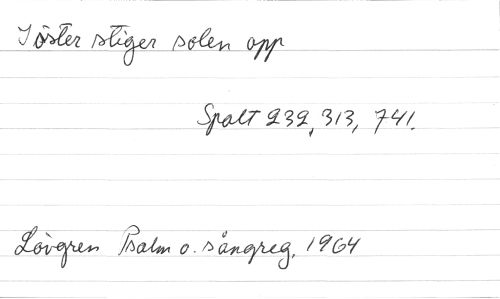 I öster stiger solen opp
Spalt 232, 313, 741.
Lövgren Psalm o. sångreg. 1964